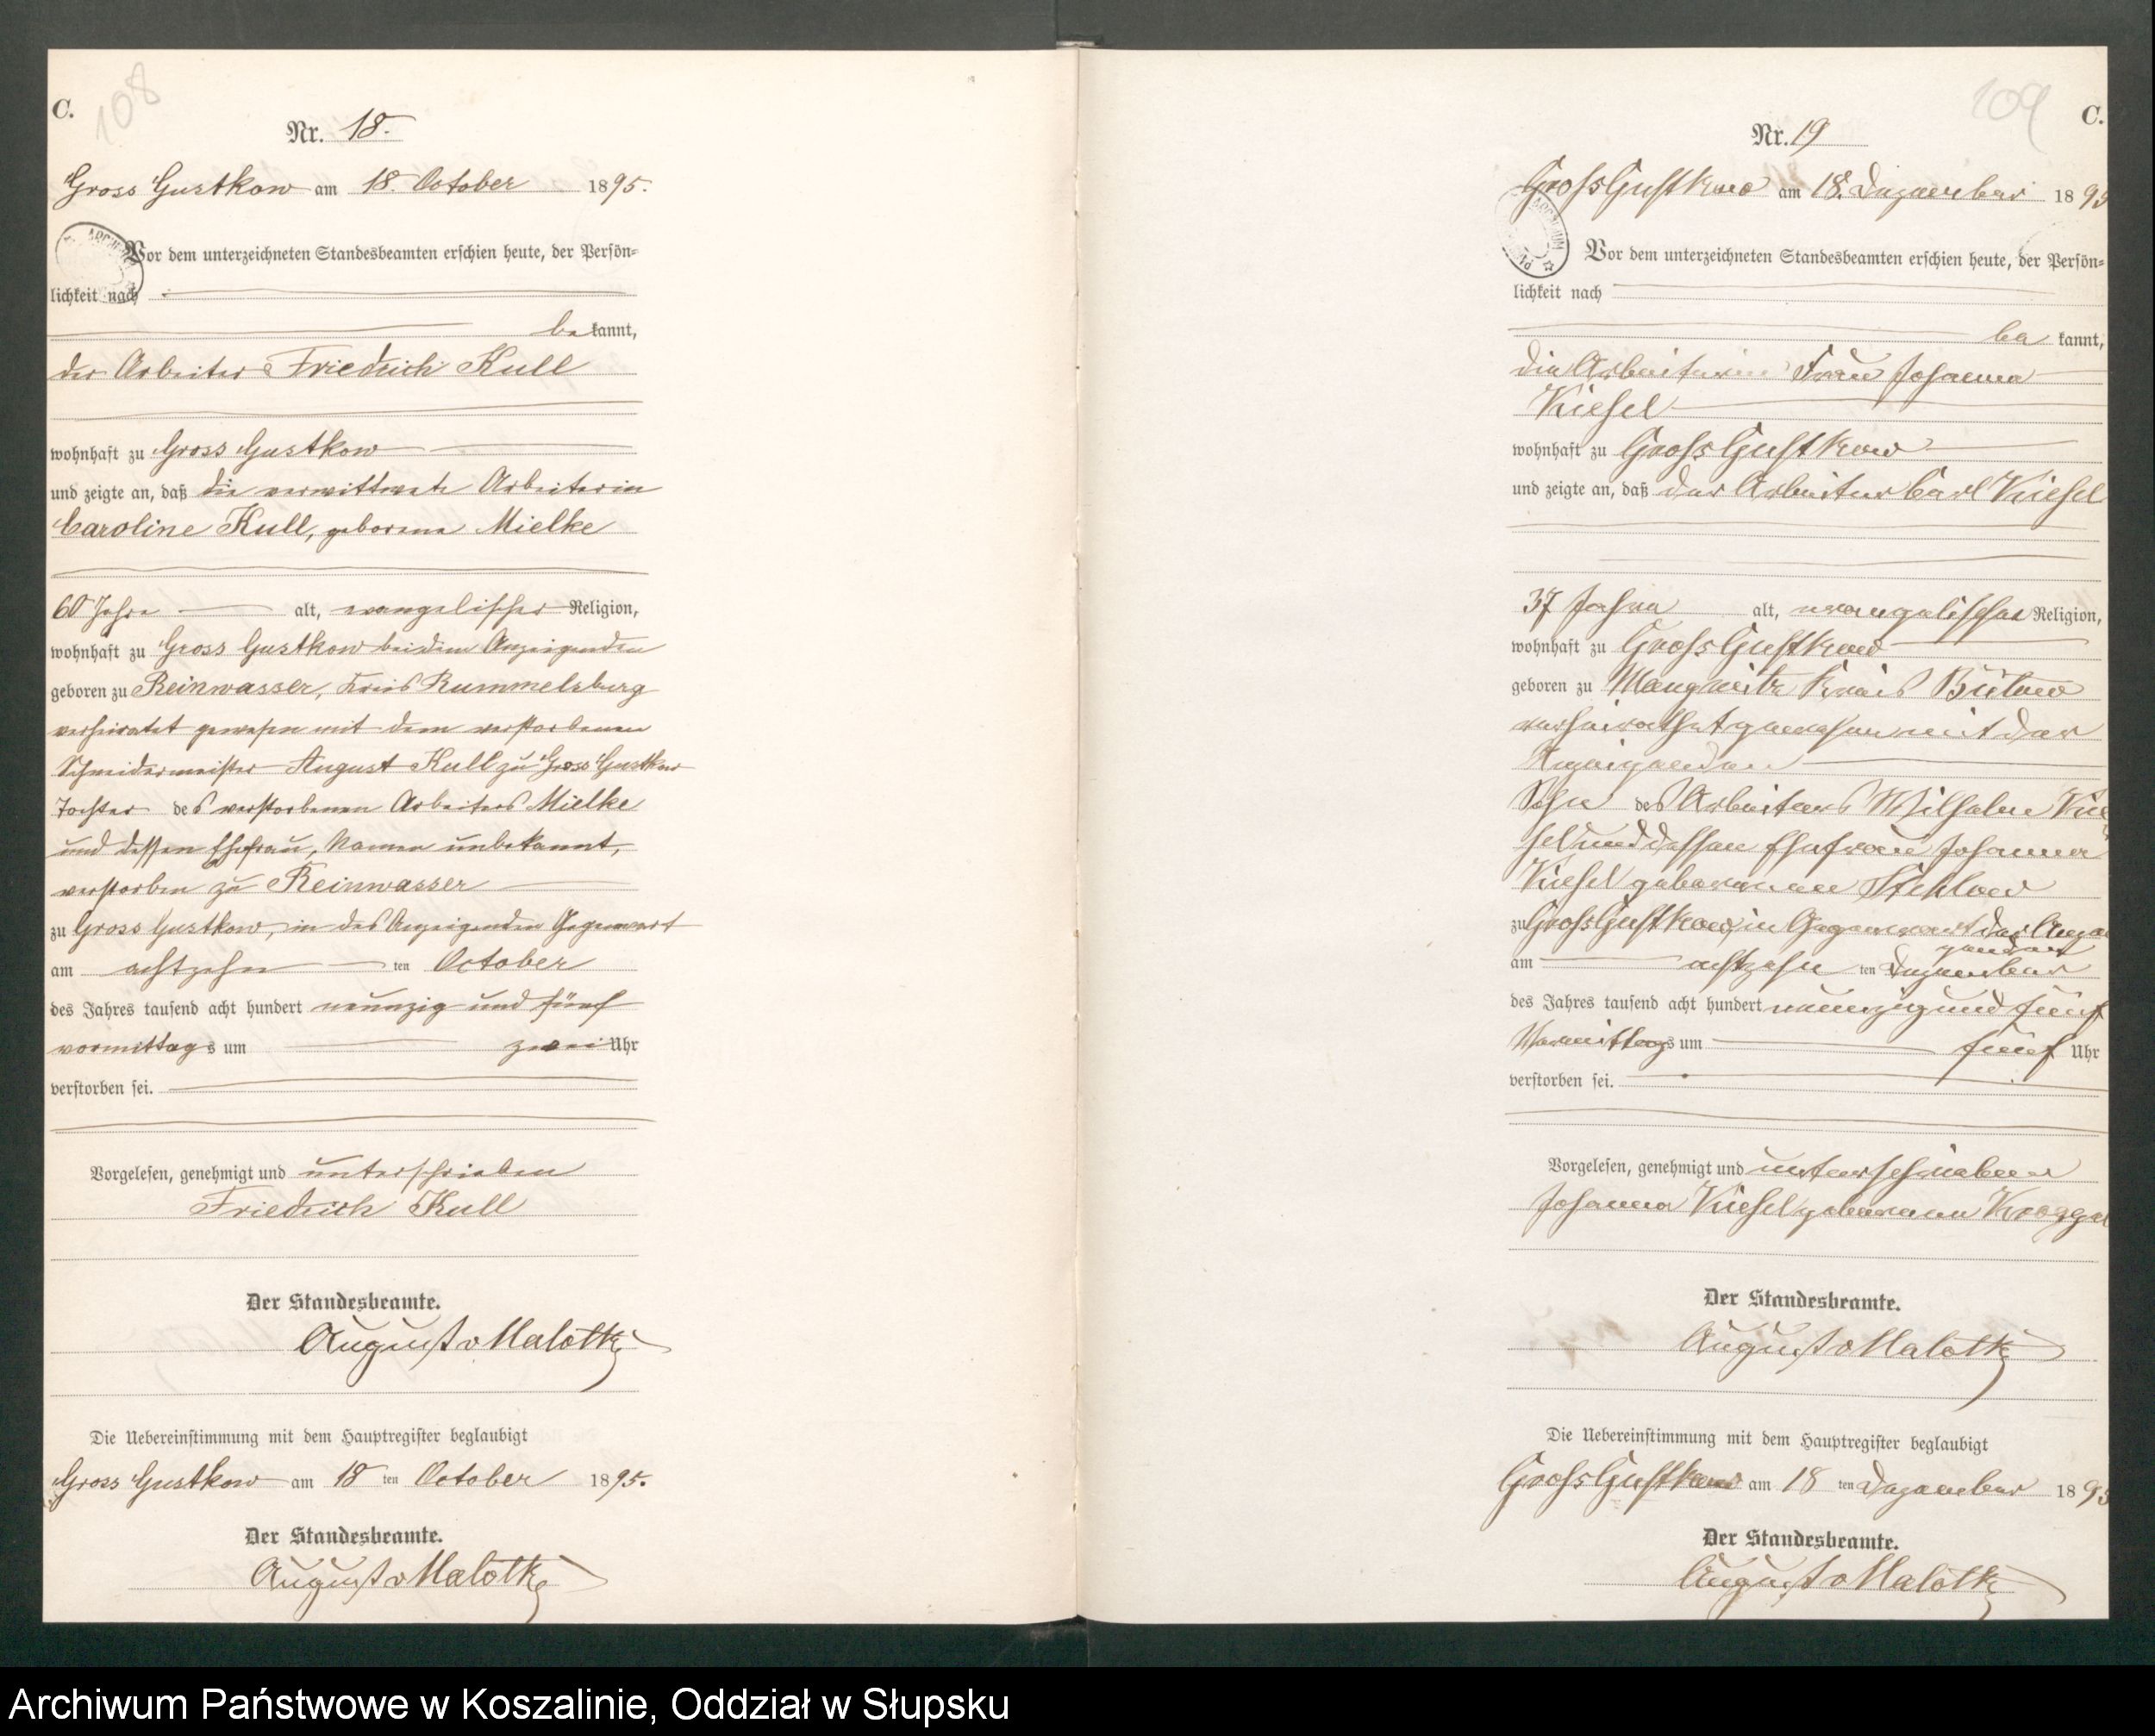 108
C.
Nr. 18.
Gross Gustkow am 18. October 1895.
Vor dem unterzeichneten Standesbeamten erschien heute, der Persön-
lichkeit nach
bekannt,
der Arbeiter Friedrich Kull
wohnhaft zu Gross Gustkow
und zeigte an, daß die verwittwete Arbeiterin
Caroline Kull, geborene Mielke
60 Jahre alt, evangelischer Religion,
wohnhaft zu Gross Gustkow bei dem Anzeigenden
geboren zu Reinwasser, Kreis Rummelsburg
verheiratet gewesen mit dem verstorbenen
Schneidermeister August Kull zu Gross Gustkow
Tochter des verstorbenen Arbeiters Mielke
und dessen Ehefrau, Namen unbekannt,
verstorben zu Reinwasser
zu Gross Gustkow, in des Anzeigenden Gegenwart
am achtzehn ten October
des Jahres tausend acht hundert neunzig und fünf
vormittags um zwei Uhr
verstorben sei.
Vorgelesen, genehmigt und unterschrieben
Friedrich Kull
Der Standesbeamte.
August v Malottki
Die Uebereinstimmung mit dem Hauptregister beglaubigt
Gross Gustkow am 18 ten October 1895.
Der Standesbeamte.
August v Malottki
109
C.
Nr. 19
Groß Gustkow am 18. Dezember 1895
Vor dem unterzeichneten Standesbeamten erschien heute, der Persön-
lichkeit nach
bekannt,
die Arbeiterin Frau Johanna
Kiesel
wohnhaft zu Groß Gustkow
und zeigte an, daß der Arbeiter Carl Kiesel
37 Jahre alt, evangelischer Religion,
wohnhaft zu Groß Gustkow
geboren zu Mangwitz Kreis Bütow
verheirathet gewesen mit der
Anzeigenden
Sohn des Arbeiters Wilhelm Kie
sel und dessen Ehefrau Johanna
Kiesel geborenen Stehlow
zu Groß Gustkow, in Gegenwart der Anzei
genden
am achtzehn ten Dezember
des Jahres tausend acht hundert neunzig und fünf
Vormittags um fünf Uhr
verstorben sei.
Vorgelesen, genehmigt und unterschrieben
Johanna Kiesel geborenen
Der Standesbeamte.
August v Malottki
Die Uebereinstimmung mit dem Hauptregister beglaubigt
Groß Gustkow am 18 ten Dezember 1895
Der Standesbeamte.
August v Malottki
Archiwum Państwowe w Koszalinie, Oddział w Słupsku